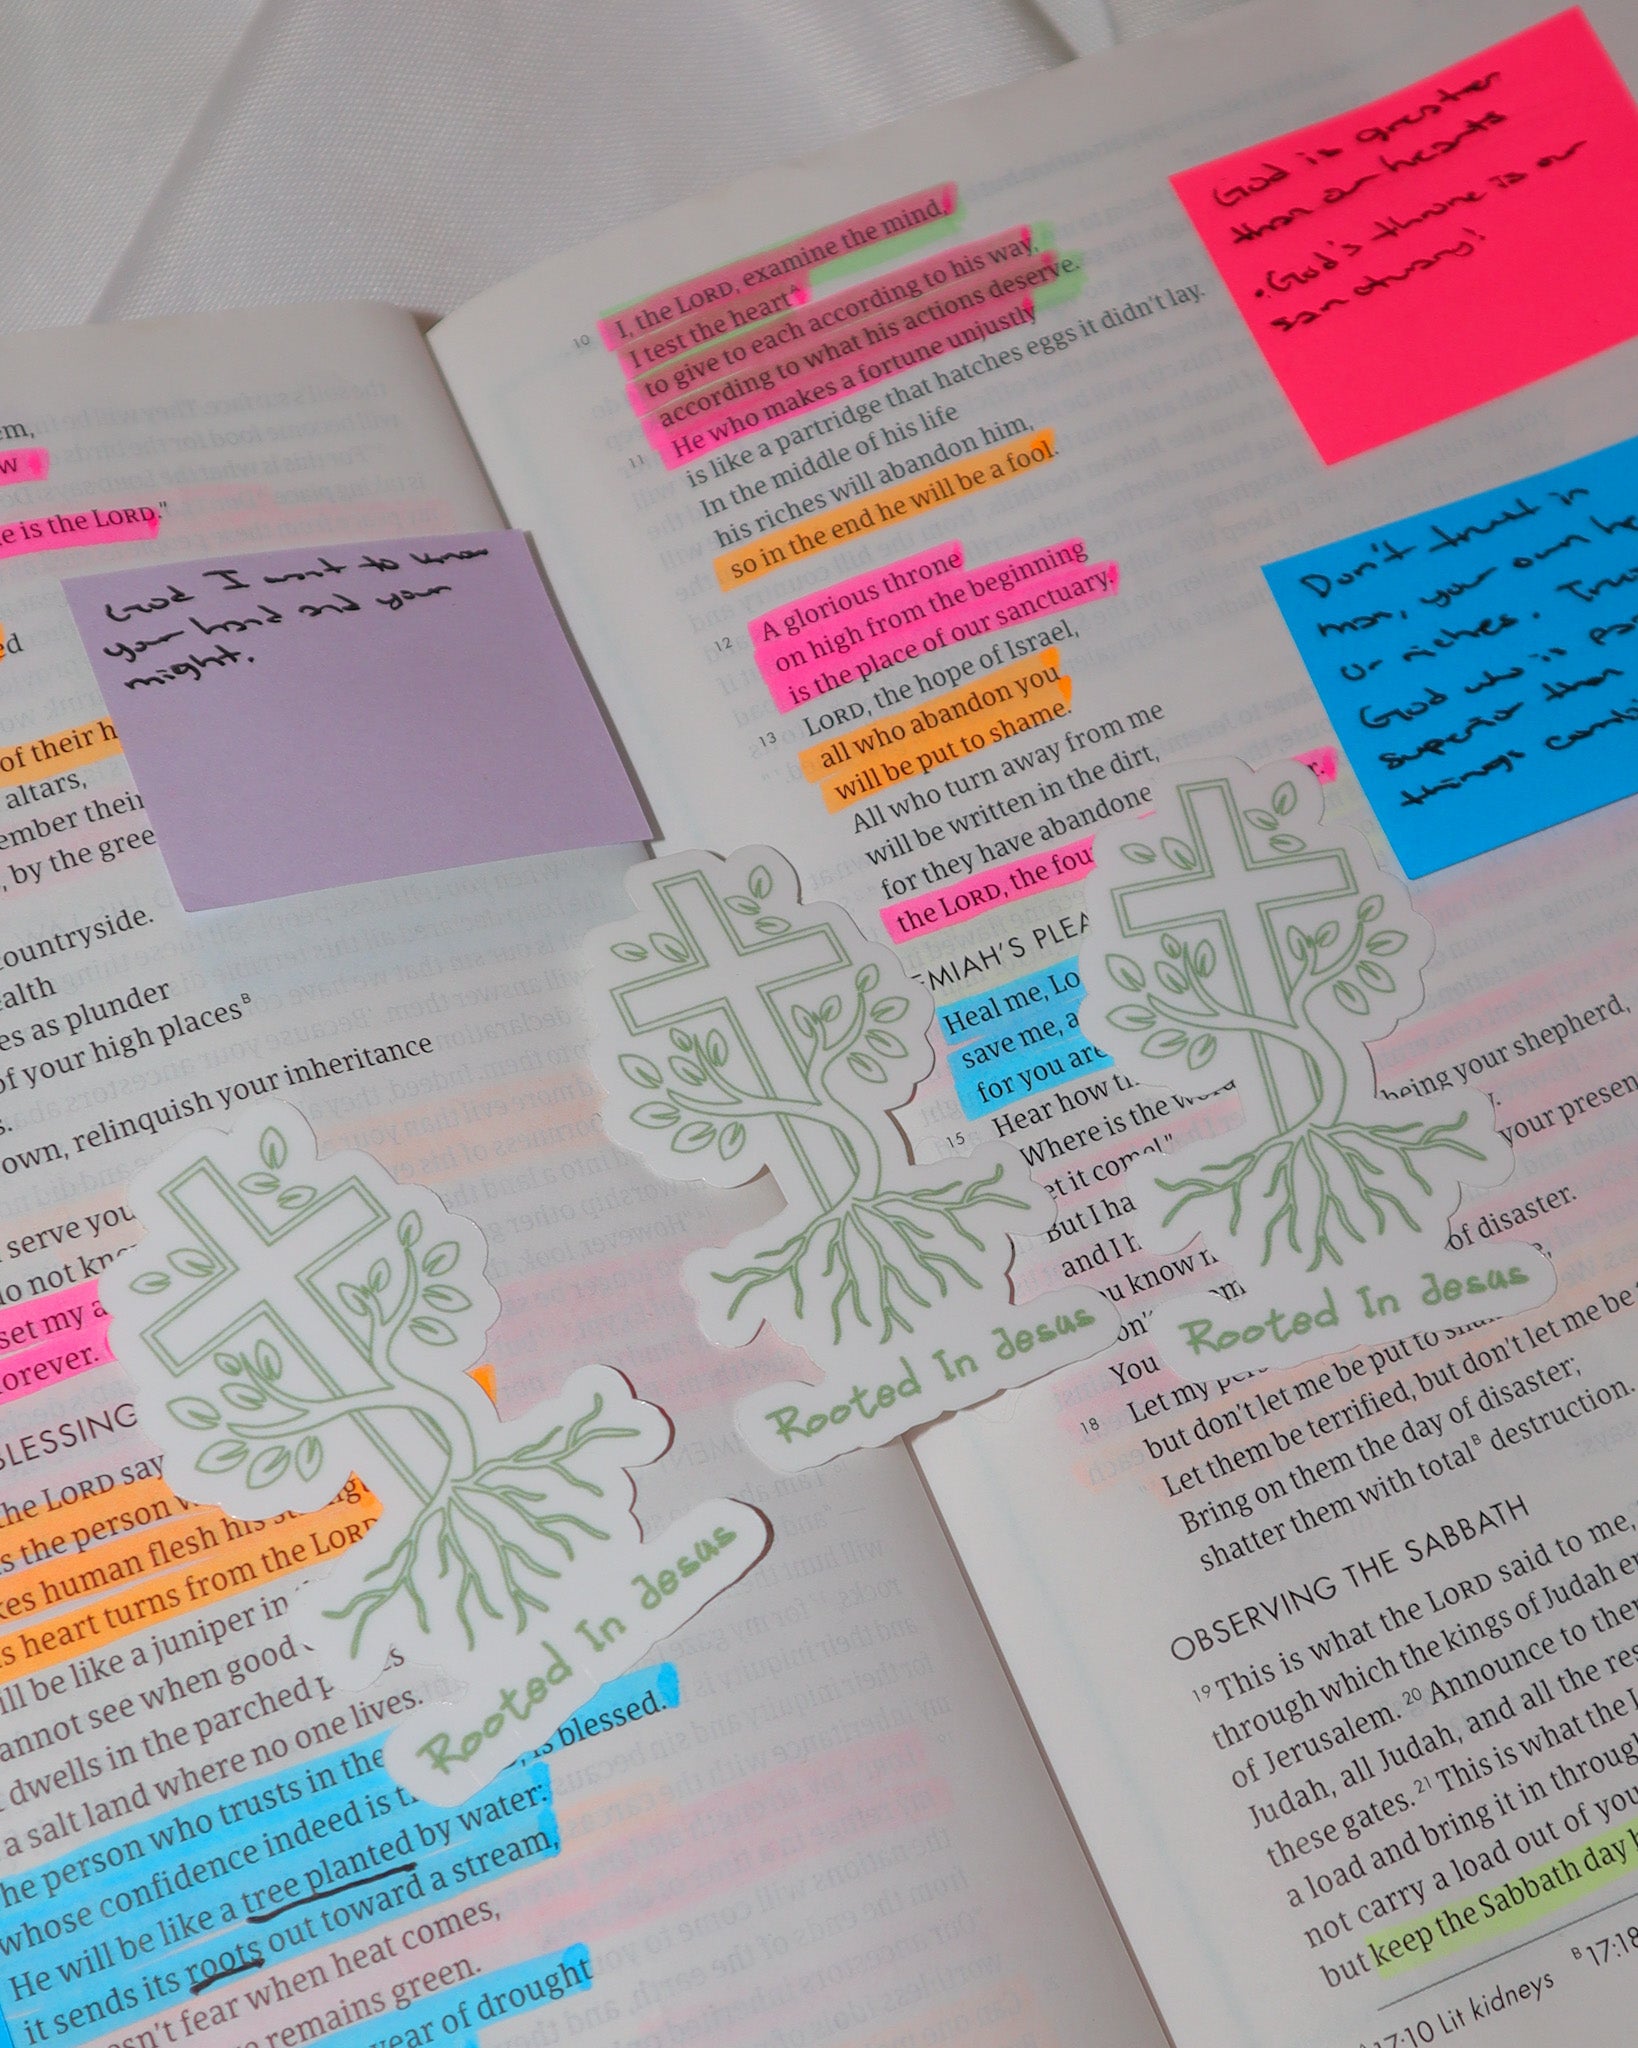 em,
w
e is the LORD."
God I want to know
your hand and your
might.
ed
of their h
altars,
ember their
, by the gree
ountryside.
ealth
es as plunder
of your high places B
s.
own, relinquish your inheritance
serve you
o not kno
set my a
orever.
BLESSING
he LORD say
s the person w
kes human flesh his streng
s heart turns from the LORD
ill be like a juniper in
annot see when good
dwells in the parched p es
a salt land where no one lives.
he person who trusts in the
whose confidence indeed is t , is blessed.
He will be like a tree planted by water:
it sends its roots out toward a stream,
esn't fear when heat comes,
e remains green.
year of drought
10 I, the LORD, examine the mind,
I test the heart A
to give to each according to his way,
according to what his actions deserve.
11 He who makes a fortune unjustly
is like a partridge that hatches eggs it didn't lay.
In the middle of his life
his riches will abandon him,
so in the end he will be a fool.
12 A glorious throne
on high from the beginning
is the place of our sanctuary.
13 LORD, the hope of Israel,
all who abandon you
will be put to shame.
All who turn away from me
will be written in the dirt,
for they have abandone
the LORD, the fou r.
EMIAH'S PLEA
Heal me, Lo
save me, a
for you are
15 Hear how th
Where is the word
et it come!"
But I ha being your shepherd,
and I h
ou know m your presen
on't of disaster.
You
18 Let my pers
but don't let me be put to sham
Let them be terrified, but don't let me be
Bring on them the day of disaster;
shatter them with total B destruction.
OBSERVING THE SABBATH
19 This is what the LORD said to me,
through which the kings of Judah en
of Jerusalem. 20 Announce to ther
Judah, all Judah, and all the res
these gates. 21 This is what the L
a load and bring it in through
not carry a load out of you
but keep the Sabbath day h
A 17:10 Lit kidneys B 17:18
God is greater
than our hearts
. God's throne is our
sanctuary!
Don't trust in
man, your own he
or riches. Trus
God who is
superior than
things combi
Rooted In Jesus
Rooted In Jesus
Rooted In Jesus